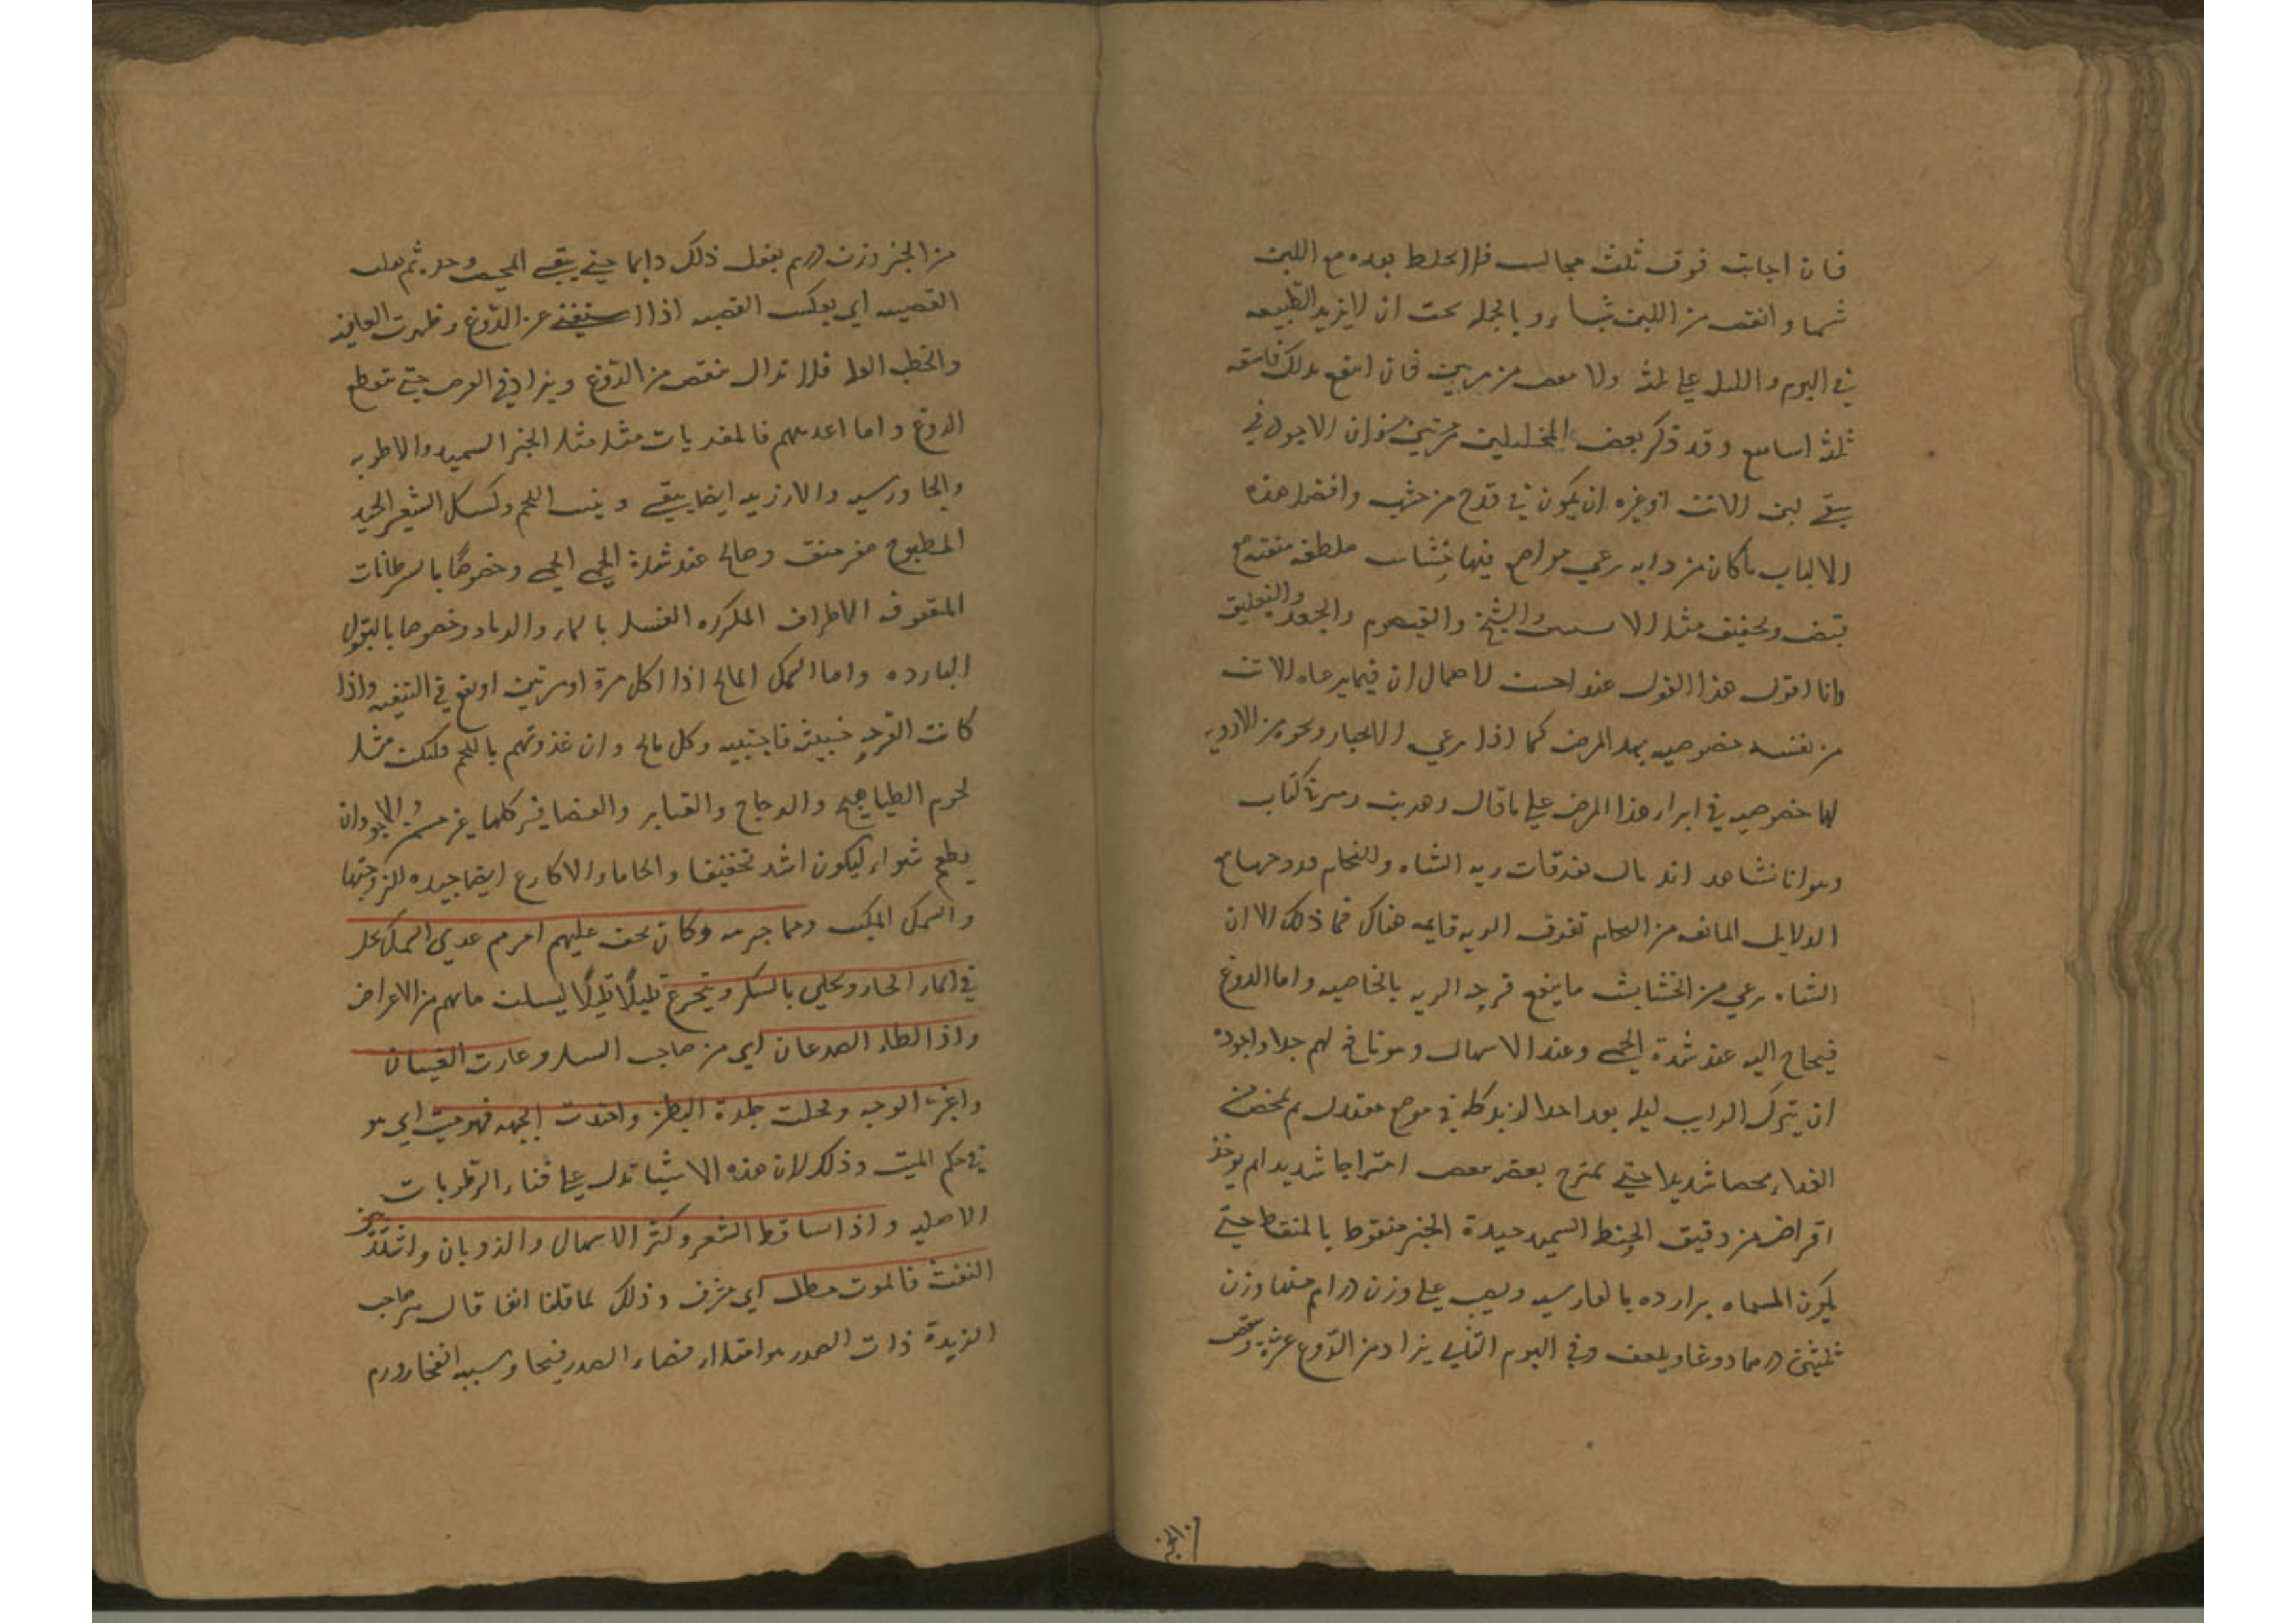 فان اجابت فوق ثلث مجالس فلا يخلط بعده مع اللبن
شيئا وانقص من اللبن شيئا وبالجملة يجب ان لا يزيد الطبيعه
في اليوم والليل علي ثلثه ولا ينقص من مرتين فان انتفع بذلك فاسقه
ثلثة اسابيع وقد ذكر بعض المخليلين مرتين ان الاجود في
سقي لبن الاتن او غيره ان يكون في قدح من خشب وافضل هذه
الالباب ما كان من دابه رعي مواضع فيها خشاب ملطفه منقيه مع
قبض وتجفيف مثل الا والشيخ والقيصوم والجعد والتعليق
وانا اقول هذا القول عندا حسن لاحتمال ان فيما يرعاه الاتن
من نفسه خصوصيه بهذا المرض كما اذا رعي الانجبار ونحوه من الادويه
لها خصوصيه في ابراء هذا المرض علي ما قال
وهو انا نشاهد تفرقات ريه الشاه والتحام قروحها مع
الدلايل المانعه من التحام تفرق الريه قايمه هناك فما ذلك الا ان
الشاه رعي من الخشايش ما ينفع قرحه الريه بالخاصيه واما الدوغ
فيحتاج اليه عند شدة الحمي وعند الاسهال وهو نافع لهم جدا واجوده
ان يترك الرايب ليله بعد اخذ الزبد كله في موضع معتدل ثم يمخض من
الغداء مخضا شديدا حتي يمتزج بعضه ببعض امتزاجا شديدا ثم يوخذ
اقراض من دقيق الحنطه السميد جيدة الخبز منقوطه بالمنقاط حتي
يكون المسماه برازده بالفارسيه ويصب علي وزن درهم منها وزن
ثلثين درهما دوغا ويلعق وفي اليوم الثاني يزاد من الدوغ عشره وينقص
من الخبز
من الخبز وزن درهم يفعل ذلك دايما حتي يبقي المخيض وحده ثم يقلب
القصيه اي يعكس القصه اذا استغني عن الدوغ وظهرت العافيه
وانحط العله فلا تزال ينقص من الدوغ ويزاد في القرص حتي ينقطع
الدوغ واما اغذيتهم فالمغريات مثل الخبز السميد والاطريه
والجاورسيه والارزيه ايضا ينقي وينبت اللحم وكشك الشعير الجيد
المطبوخ مغر منق وصالح عند شدة الحمي الحمي وخصوصا بالسرطانات
المنتوفه الاطراف المكرره الغسل بالماء والرماد وخصوصا بالبقول
البارده واما السمك المالح اذا اكل مرة او مرتين اونفع في التنقيه واذا
كانت القرحه خبيثه فاجتنبه وكل مالح وان غذوتهم باللحم فليكن مثل
لحوم الطياهيج والدجاج والقنابر والعصافير كلها غير والاجود ان
يطعم شواء ليكون اشد تجفيفا والحاما والاكارع ايضا جيده للزوجتها
والسمك المكبب ومما جربته وكان يخف عليهم امرهم غدي السمك يحل
في الماء الحار ويحلي بالسكر ويتجرع قليلا قليلا ليسكن ما بهم من الاعراض
واذا لطاء الصدعان اي من صاحب السل وغارت العينان
واغبر الوجه وقحلت جلدة البطن وامتدت الجبهه فهو ميت اي هو
في حكم الميت وذلك لان هذه الاشيا تدل علي فناء الرطوبات
الاصليه واذا ساقط الشعر وكثر الاسهال والذوبان واشتد نتن
النفث فالموت مطل اي مشرف وذلك لما قلنا انفا قال صاحب
الزبدة ذات الصدر هو امتلاء فضاء الصدر قيحا وسببه انفجار ورم